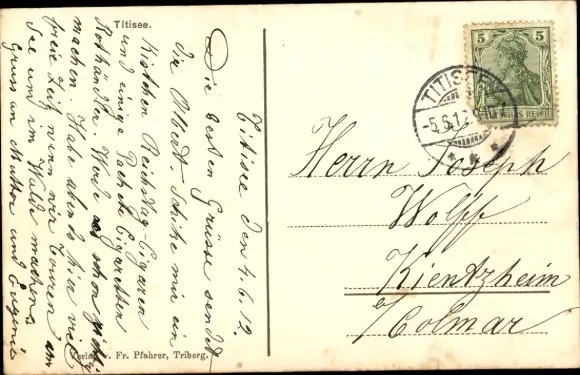 Titisee.
Titisee den 4.6.12.
Die besten Grüsse sendet
dir Albert. Schike mir ein
Kistchen Reichstag-Cigarren
und einige Pachete Cigaretten
Rothändler. Werde es schon
machen. Habe abends hier viel
freie Zeit, wenn wir Touren am
See und im Walde machen.
Gruss an Mutter und Eugenie
Verlag v. Fr. Pfahrer, Triberg.
5 5
DEUTSCHES REICH
TITISEE
-5.6.12
Herrn Joseph
Wolff
Kientzheim
b/ Colmar